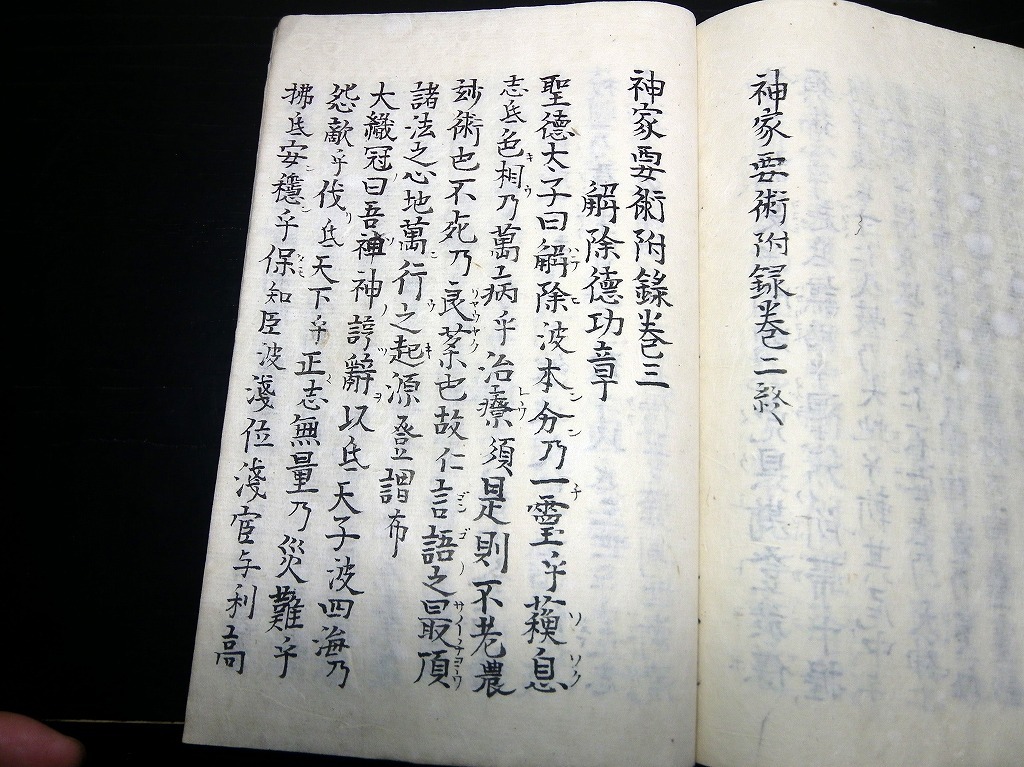 神家要術附録巻二終
神家要術附録巻三
解除德功章
聖德太子曰解除波本分乃一霊乎蘓息
志氐色相乃萬病乎治療須是則不老農
妙術也不死乃良薬也故仁言語之最頂
諸法之心地萬行之起源登謂布
大織冠曰吾神神辭以氐天子波四海乃
怨敵乎伐氐天下乎正志無量乃災難乎
拂氐安穩乎保知臣波淺位淺官与利高